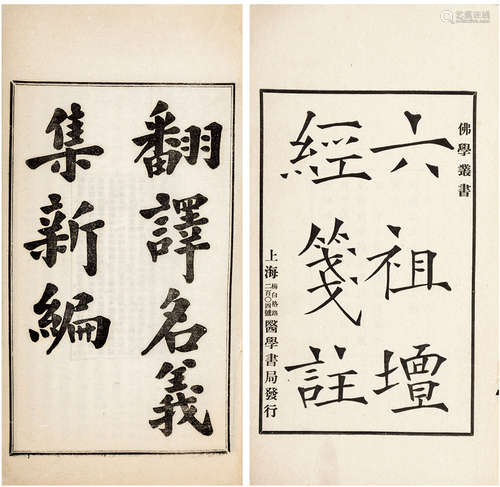 翻譯名義
集新編
佛學叢書
六祖壇
經箋註
上海梅白格路二百〇四號醫學書局發行